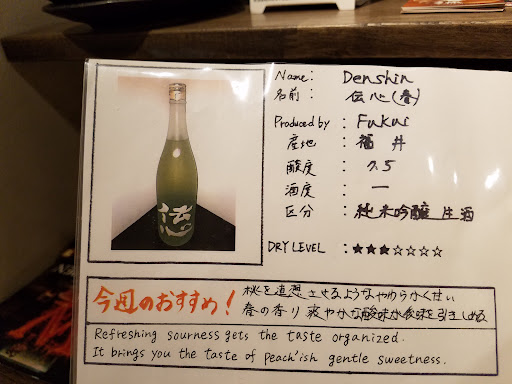 Name: Denshin
名前: 伝心(春)
Produced by: Fukui
産地: 福井
酸度: 1.5
酒度: 一
区分: 純米吟醸 生酒
DRY LEVEL: ★★★☆☆☆☆
伝心
今週のおすすめ!
桃を連想させるようなやわらかく甘い
春の香り 爽やかな酸味が食味を引きしめる
Refreshing sourness gets the taste organized.
It brings you the taste of peach'ish gentle sweetness.